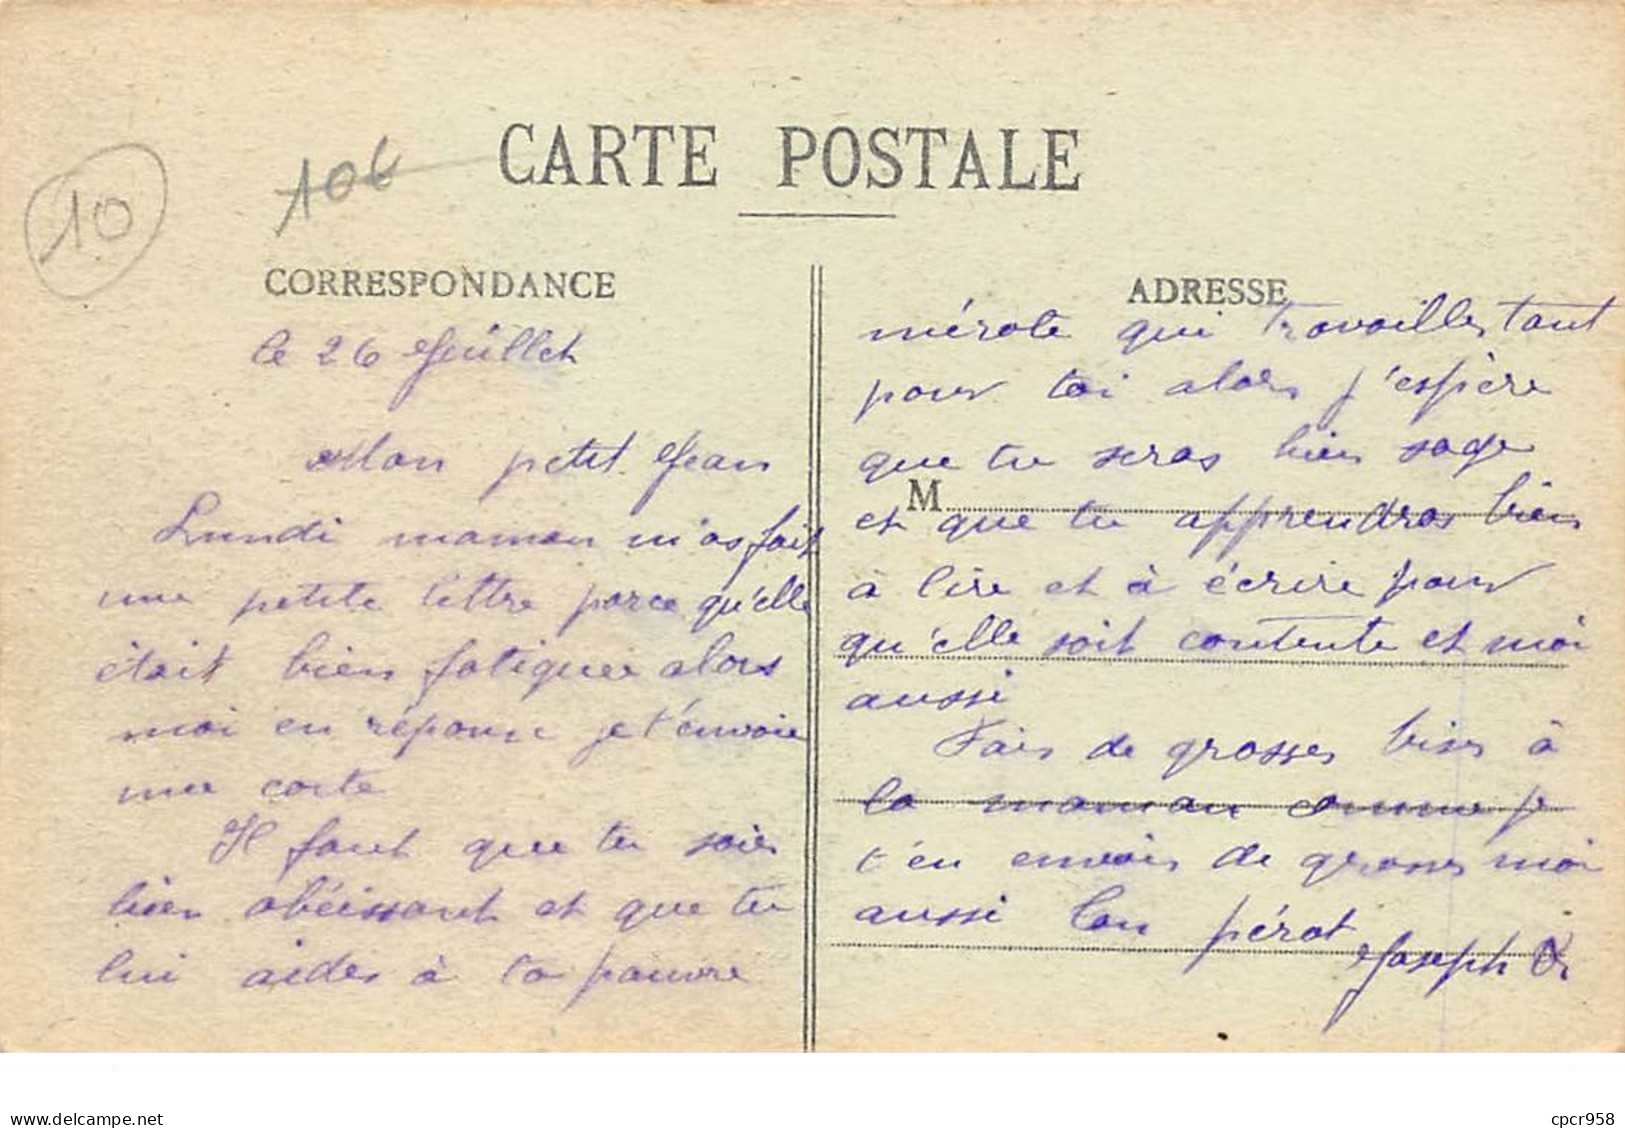 CARTE POSTALE
10
10€
CORRESPONDANCE
le 26 Juillet
Mon petit Jean
Lundi maman m'as fait
une petite lettre parce qu'elle
était bien fatiguée alors
moi en réponse je t'envoie
une carte
Il faut que tu sois
bien obéissant et que tu
lui aides à ta pauvre
ADRESSE
mérote qui travailles tant
pour toi alors j'espère
que tu seras bien sage
M
et que tu apprendras bien
à lire et à écrire pour
qu'elle soit contente et moi
aussi
Fais de grosses bises à
la maman comme je
t'en envois de grosses moi
aussi Ton pérot
Joseph
delcampe.net
cpcr958